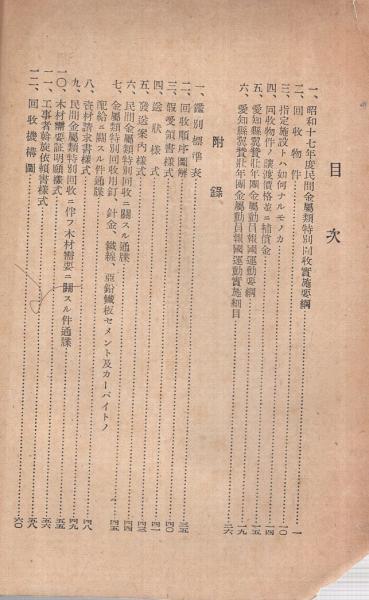 目次
一、昭和十七年度民間金屬類特別囘收實施要綱……一
二、囘收物件……
三、指定施設トハ如何ナルモノカ……一〇
四、囘收物件ノ讓渡價格並ニ補償金……一四
五、愛知縣翼贊壯年團金屬動員報國運動要綱……一九
六、愛知縣翼贊壯年團金屬動員報國運動實施細目……二六
附錄
一、鑑別標準表……三五
二、囘收順序圖解……
三、假受領書樣式……四〇
四、送狀樣式……四一
五、發送案內樣式……四三
六、民間金屬類特別囘收ニ關スル通牒……四四
七、金屬類特別囘收用釘、針金、鐵線、亞鉛鐵板セメント及カーバイトノ
配給ニ關スル件通牒……四五
八、資材請求書樣式……四八
九、民間金屬類特別囘收ニ伴フ木材需要ニ關スル件通牒……四九
一〇、木材需要證明願樣式……五五
一一、工事者斡旋依賴書樣式……五六
一二、囘收機構圖……五八
六〇